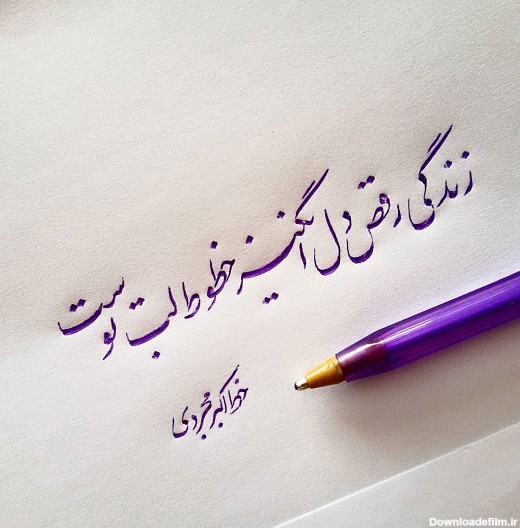 زندگی رقص دل انگیز خطوط لب توست
خط اکبر مجردی
Downloadefilm.ir